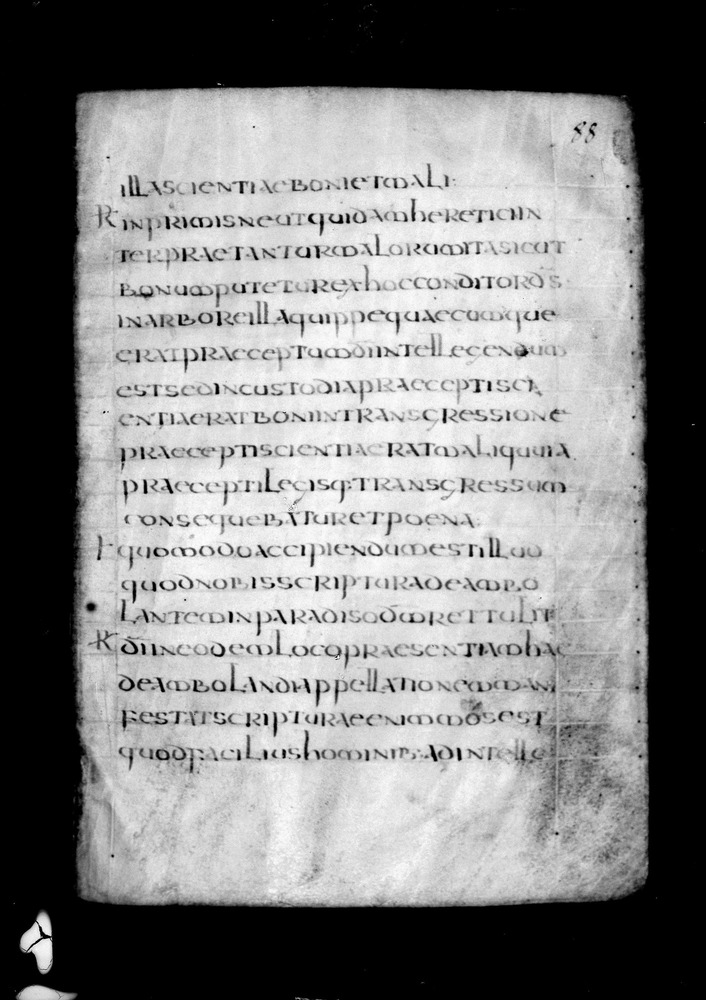 88
illascientiaebonietmali:
R inprimisneutquidamhereticiin
terpraetanturmalorumitasicut
bonumputeturexhocconditords
inarboreillaquippequaecumque
eratpraeceptumdiintellegendum
estsedincustodiapraeceptisci
entiaeratboniintransgressione
praeceptiscientiaeratmaliquia
praeceptilegisq:transgressum
consequebaturetpoena:
I quomodoaccipiendumestillud
quodnobisscripturadeambo
lanteminparadisodmrettulit
R diineodemlocopraesentiamhac
deambolandiappellationemman
festatscripturaeenimmosest
quodfaciliushominib:adintelle